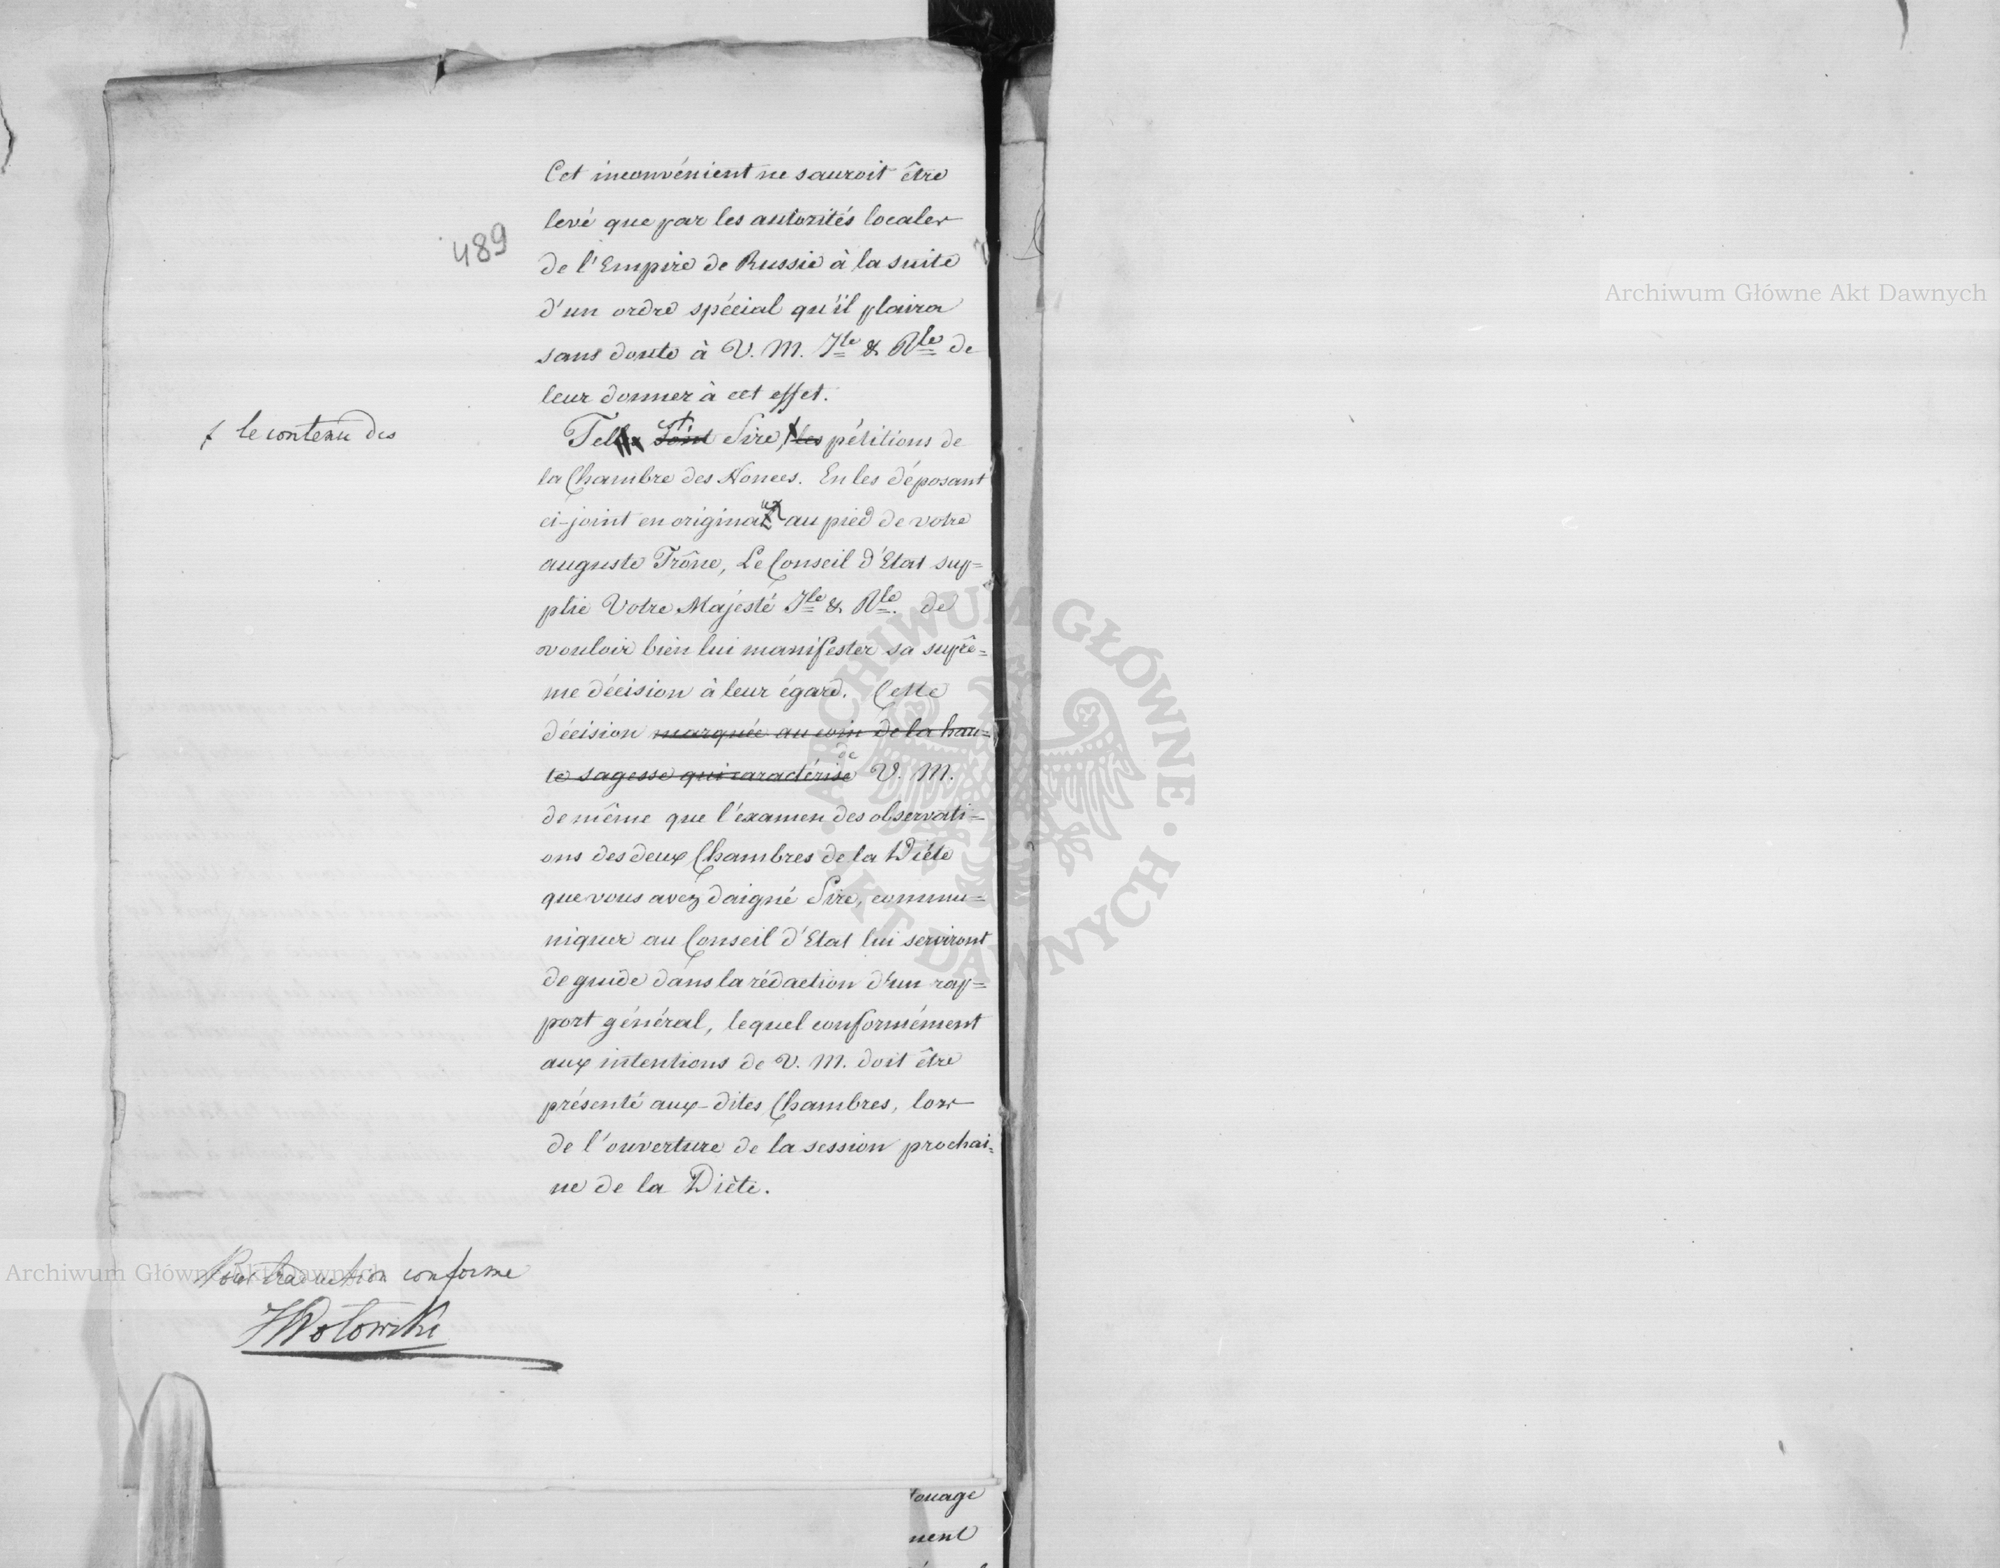 489
Cet inconvénient ne sauroit être
levé que par les autorités locales
de l'Empire de Russie à la suite
d'un ordre spécial qu'il plaira
sans doute à V. M. Ile & Rle de
leur donner à cet effet.
Tel est Sire, les pétitions de
+ le contenu des
la Chambre des Nonces. En les déposant
ci-joint en original au pied de votre
auguste Trône, Le Conseil d'Etat sup=
plie Votre Majesté Ile & Rle. de
vouloir bien lui manifester sa suprê=
me décision à leur égard. Cette
décision marquée au coin de la hau=
te sagesse qui caractérise de V. M.
de même que l'examen des observati=
ons des deux Chambres de la Diéte
que vous avez daigné Sire, commu=
niquer au Conseil d'Etat lui serviront
de guide dans la rédaction d'un rap=
port général, lequel conformément
aux intentions de V. M. doit être
présenté aux-dites Chambres, lors
de l'ouverture de la session prochai=
ne de la Diète.
Pour traduction conforme
Wołowski
nent
Archiwum Główne Akt Dawnych
Archiwum Główne Akt Dawnych
ARCHIWUM GŁÓWNE · AKT DAWNYCH ·